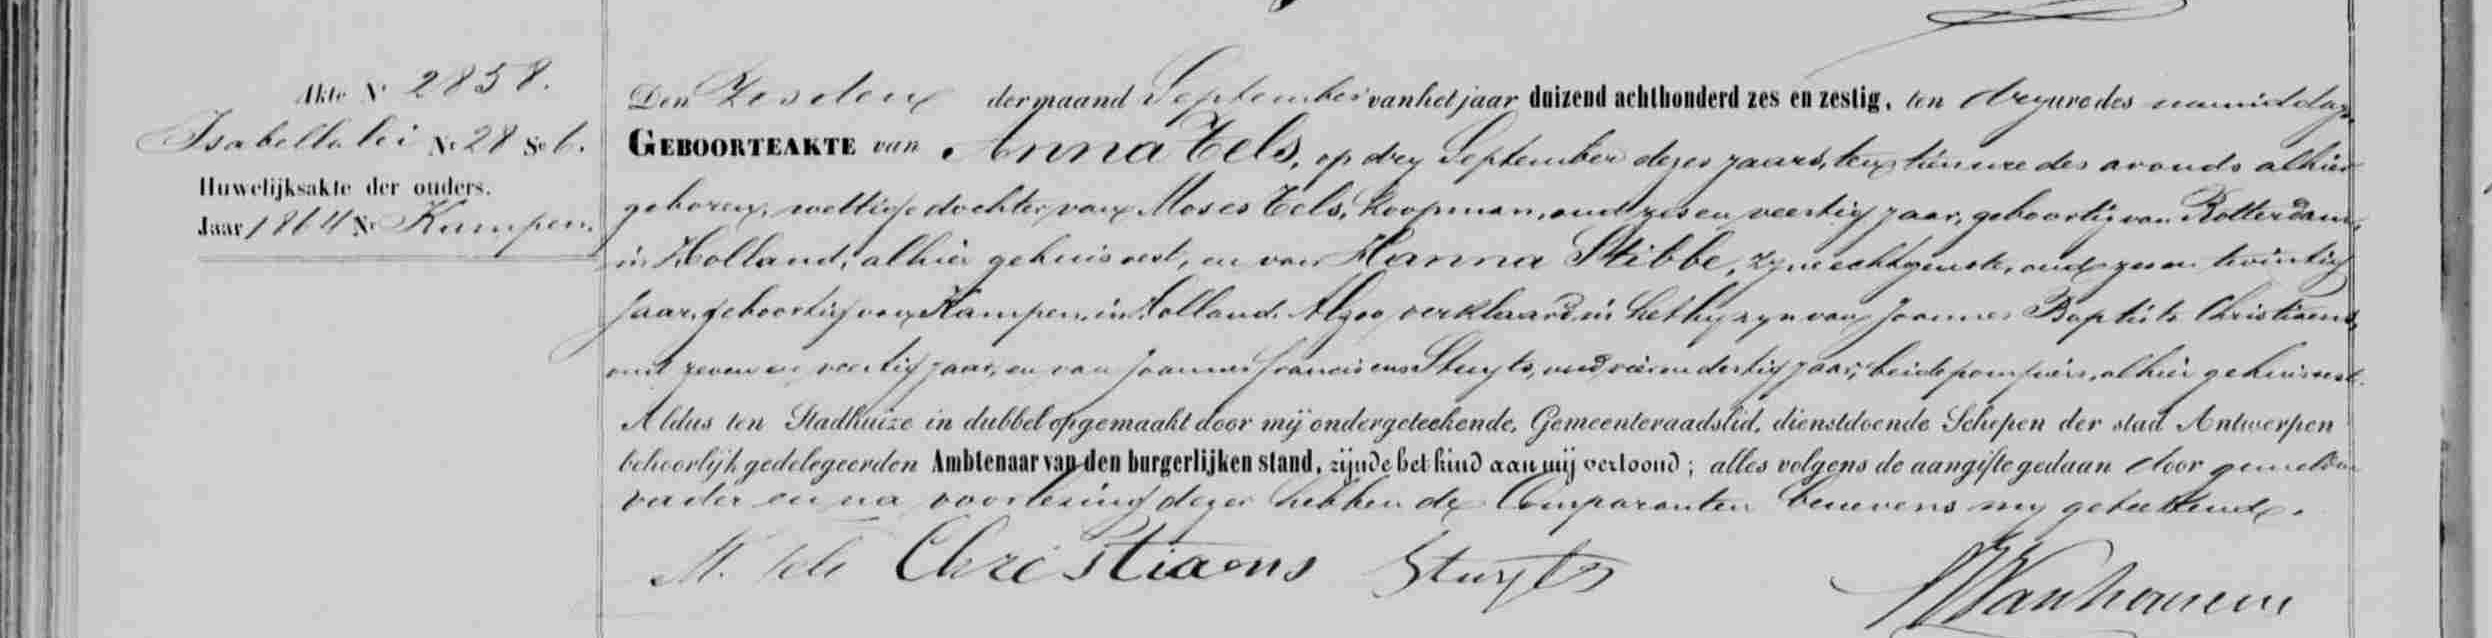 Akte N 2858.
Isabella lei Nr 28 Se 6.
Huwelijksakte der ouders.
Jaar 1864 Nr Kampen.
Den Zesden der maand September van het jaar duizend achthonderd zes en zestig, ten dry ure des namiddags
GEBOORTEAKTE van Anna Tels, op dry September dezes jaars, ten tien ure des avonds alhier
geboren, wettige dochter van Moses Tels, koopman, oud zes en veertig jaar, geboortig van Rotterdam,
in Holland, alhier gehuisvest, en van Hanna Stibbe, zyne echtgenote, oud zes en twintig
jaar, geboortig van Kampen, in Holland. Alzoo verklaard in het byzyn van Joannes Baptiste Christiaens,
oud zeven en veertig jaar, en van Joannes Franciscus Stuyts, oud vier en dertig jaar, beide pompiers, alhier gehuisvest.
Aldus ten Stadhuize in dubbel opgemaakt door mij ondergeteekende, Gemeenteraadslid, dienstdoende Schepen der stad Antwerpen
behoorlijk gedelegeerden Ambtenaar van den burgerlijken stand, zijnde het kind aan mij vertoond; alles volgens de aangifte gedaan door gemelden
vader en na voorlezing dezer hebben de Comparanten benevens my geteekend.
M. Tels Christiaens Stuyts